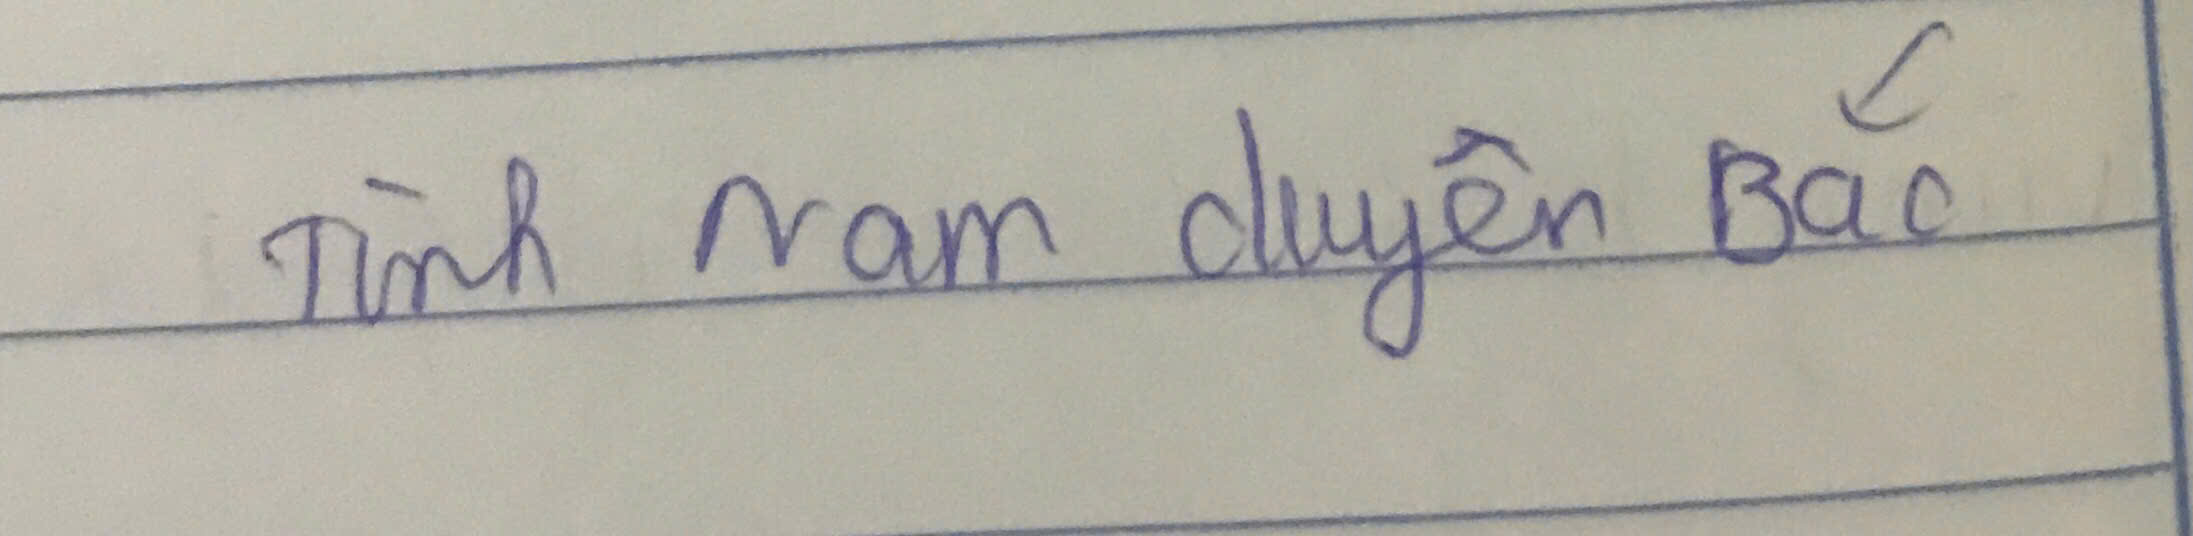 Tình Nam duyên Bắc